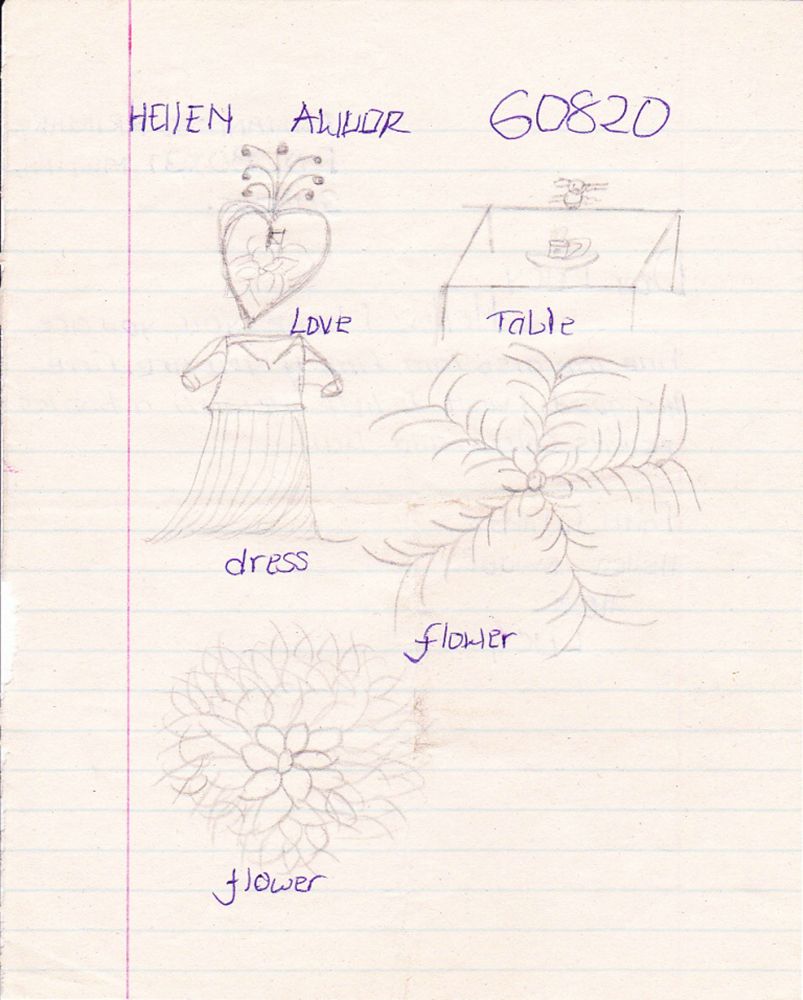 HEllEN AWUOR 60820
LOVE
TABLE
dress
flower
flower